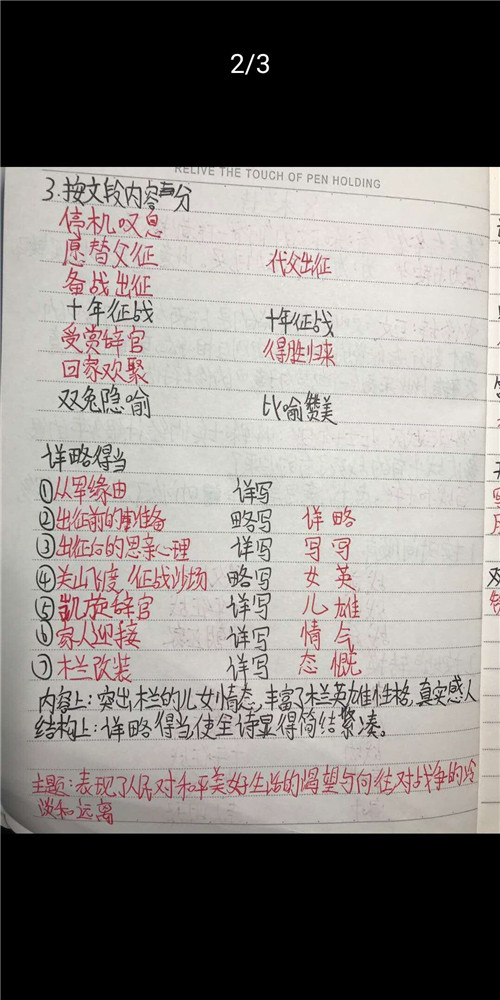 2/3
RELIVE THE TOUCH OF PEN HOLDING
3.按文段内容划分
停机叹息
愿替父征 代父出征
备战出征
十年征战 十年征战
受赏辞官 得胜归来
回家欢聚
双兔隐喻 比喻赞美
详略得当
①从军缘由 详写
②出征前的准备 略写 详略
③出征后的思亲心理 详写 写写
④关山飞度/征战沙场 略写 女英
⑤凯旋辞官 详写 儿雄
⑥家人迎接 详写 情气
⑦木兰改装 详写 态慨
内容上:突出木兰的儿女情态,丰富了木兰英雄性格,真实感人
结构上:详略得当使全诗显得简洁紧凑。
主题:表现了人民对和平美好生活的渴望与向往对战争的冷
淡和远离